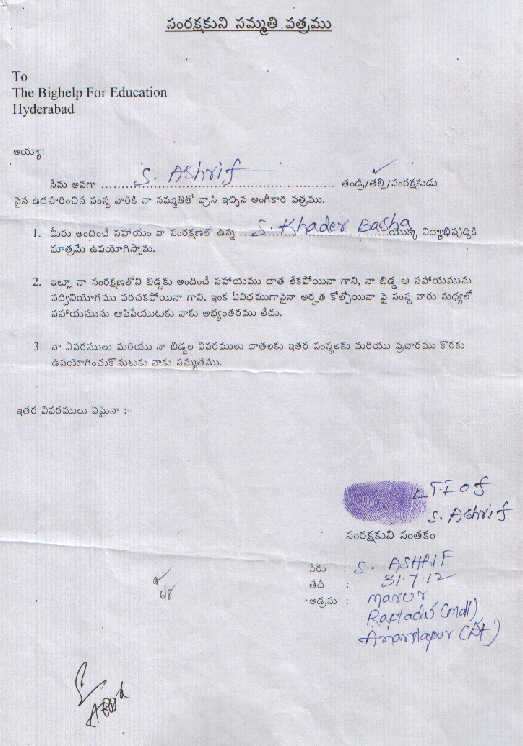 సంరక్షకుని సమ్మతి పత్రము
To
The Bighelp For Education
Hyderabad
అయ్యా
నేను అనగా S. Ashrif తండ్రి/తల్లి/సంరక్షకుడు
పైన ఉదహరించిన సంస్థ వారికి నా సమ్మతితో వ్రాసి ఇచ్చిన అంగీకార పత్రము.
1. మీరు అందించే సహాయం నా సంరక్షణలో ఉన్న S. Khader Basha యొక్క విద్యాభివృద్ధికి
మాత్రమే ఉపయోగిస్తాను.
2. ఇట్లా నా సంరక్షణలోని బిడ్డకు అందించే సహాయము దాత లేకపోయినా గాని, నా బిడ్డ ఆ సహాయమును
సద్వినియోగము పరచకపోయినా గాని, ఇంక ఏవిధముగానైనా అర్హత కోల్పోయినా పై సంస్థ వారు మధ్యలో
సహాయమును ఆపివేయుటకు నాకు అభ్యంతరము లేదు.
3 నా వివరములు మరియు నా బిడ్డల వివరములు దాతలకు ఇతర సంస్థలకు మరియు ప్రచారము కొరకు
ఉపయోగించుకొనుటకు నాకు సమ్మతము.
ఇతర వివరములు ఏమైనా :-
LTI of
S. Ashrif
సంరక్షకుని సంతకం
పేరు S. ASHRIF
తేది : 31.7.12
అడ్రసు : Marur
Raptadu (mdl)
Anantapur (Dt)